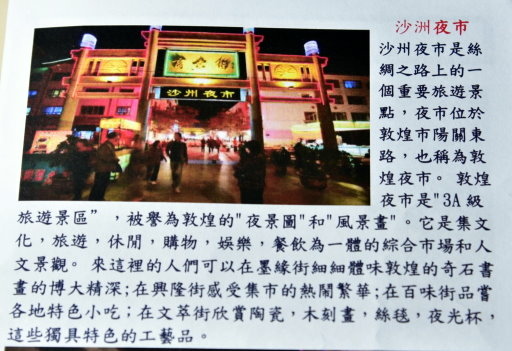 沙洲夜市
沙州夜市
沙州夜市是絲
綢之路上的一
個重要旅遊景
點，夜市位於
敦煌市陽關東
路，也稱為敦
煌夜市。 敦煌
夜市是"3A 級
旅遊景區”，被譽為敦煌的"夜景圖"和"風景畫"。它是集文
化，旅遊，休閒，購物，娛樂，餐飲為一體的綜合市場和人
文景觀。 來這裡的人們可以在墨緣街細細體味敦煌的奇石書
畫的博大精深;在興隆街感受集市的熱鬧繁華;在百味街品嘗
各地特色小吃；在文萃街欣賞陶瓷，木刻畫，絲毯，夜光杯，
這些獨具特色的工藝品。